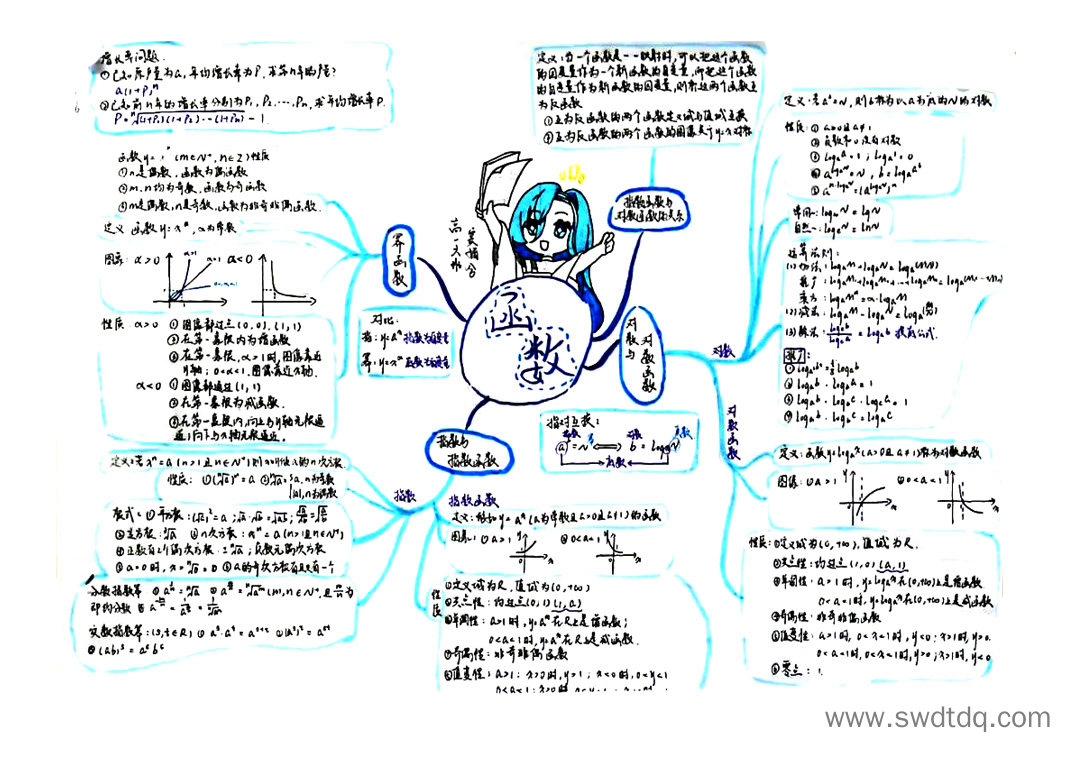 增长率问题.
①已知原产量为a,年均增长率为P,求第n年的产量?
a(1+P)ⁿ
②已知前n年的增长率分别为P₁,P₂,…,Pn,求年均增长率P.
P=ⁿ√(1+P₁)(1+P₂)…(1+Pn) - 1.
(m∈N*,n∈Z)性质
①n是偶数,函数为偶函数
②m.n均为奇数,函数为奇函数
③m是偶数,n是奇数,函数为非奇非偶函数.
定义 函数y=x^α,α为常数
图象: α>0
α<0
性质 α>0 ①图象都过点(0,0),(1,1)
②在第一象限内为增函数
③在第一象限,α>1时,图象靠近
y轴;0<α<1,图象靠近x轴.
α<0 ①图象都通过(1,1)
②在第一象限为减函数.
③在第一象限内,向上与y轴无限逼
近;向下与x轴无限逼近.
幂函数
对比:
指:y=aˣ 指数为自变量
高一
函数
定义:当一个函数是一一映射时,可以把这个函数
的因变量作为一个新函数的自变量,而把这个函数
的自变量作为新函数的因变量,则称这两个函数互
为反函数
①互为反函数的两个函数定义域与值域互换
②互为反函数的两个函数的图象关于y=x对称
指数函数与
对数函数的关系
对数与
对数函数
对数
定义:若aᵇ=N,则b称为以a为底的N的对数
性质:①a>0且a≠1
②负数和0没有对数
③logₐa=1;logₐ1=0
常用—log₁₀N=lgN
自然—logₑN=lnN
运算法则:
(1)加法:logₐM+logₐN=logₐ(MN)
(2)减法:logₐM-logₐN=logₐ(M/N)
换底公式
推广:
②logₐb·log_b a=1
③logₐb·log_b c·log_c a=1
④logₐb·log_b c=logₐc
指对互换:
aᵇ=N ⟺ b=logₐN
对数函数
定义:函数y=logₐx(a>0且a≠1)称为对数函数
图像:①a>1
②0<a<1
性质:①定义域为(0,+∞),值域为R.
②定点性:均过点(1,0)(a,1)
③单调性:a>1时,y=logₐx在(0,+∞)上是增函数
0<a<1时,y=logₐx在(0,+∞)上是减函数
④奇偶性:非奇非偶函数
⑤值变性:a>1时,0<x<1时,y<0;x>1时,y>0.
0<a<1时,0<x<1时,y>0;x>1时,y<0
⑥零点:1.
指数与
指数函数
指数
定义:若xⁿ=a(n>1且n∈N*)则
性质:①(ⁿ√a)ⁿ=a
n为奇数
|a|,n为偶数
④正数有2个偶次方根:±ⁿ√a;负数无偶次方根
⑤a=0时,x=ⁿ√0=0 ⑥a的奇次方根有且只有一个
分数指数幂
实数指数幂:(s,t∈R) ①aˢ·aᵗ=aˢ⁺ᵗ
③(ab)ˢ=aˢbˢ
指数函数
定义:形如y=aˣ(a为常数且a>0且a≠1)的函数
图象:①a>1
②0<a<1
性质
①定义域为R,值域为(0,+∞)
②定点性:均过点(0,1)(1,a)
③单调性:a>1时,y=aˣ在R上是增函数;
0<a<1时,y=aˣ在R上是减函数.
④奇偶性:非奇非偶函数
⑤值变性:a>1:x>0时,y>1;x<0时,0<y<1
www.swdtdq.com